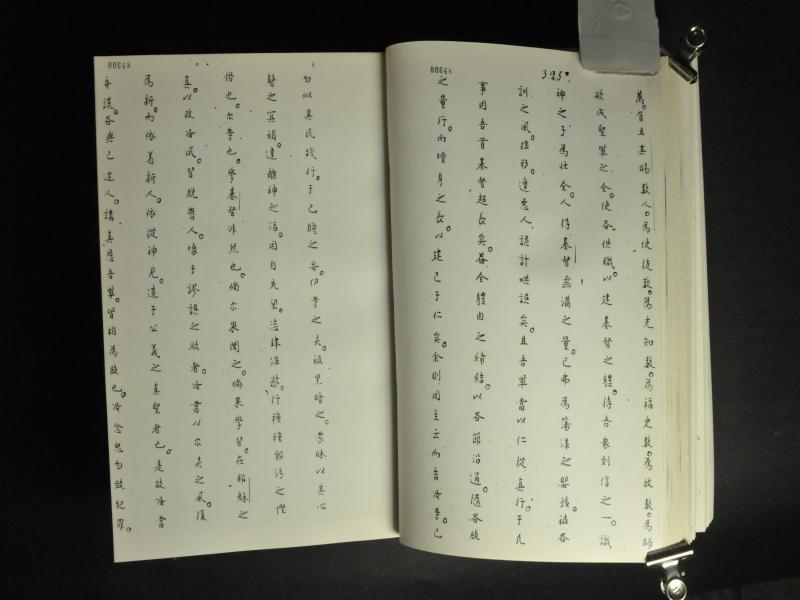 00658
325。
萬。旨且其賜數人。為使徒數。為先知數。為福史數。為牧數。為師
欲成聖輩之全。使各供職以建基督之體。待吾衆到信之一。識
神之子為壯全人得基督盈滿之量。已弗為蕩漾之嬰孩。被各
訓之風。搖移。達惡人詭計哄誤矣。且吾輩當以仁從真行于凡
事因吾首基督超長矣。蓋全體由之締結。以各節洽通。隨各肢
之量行。而增身之長。以建己于仁矣。余則因主云而吉汝等已
勿似異民行。于己臆之妄。伊等之灵被黑暗之。蒙昧以其心
瞽之冥頑。達離神之活。因自失望。恣肆淫慾。行種種穢污之慳
悋也。尔等也。學基督非然也。倘尔果聞之。倘果學習。在耶穌之
真。以改汝夙。習脫舊人。壞于謬誤之欲者。汝當以尔灵之風。復
為新。而依着新人。依從神見。造于公義之真聖者也。是故汝當
弃謊。各與己近人。講真。因吾輩。皆相為肢也。汝愈怒勿致犯罪。